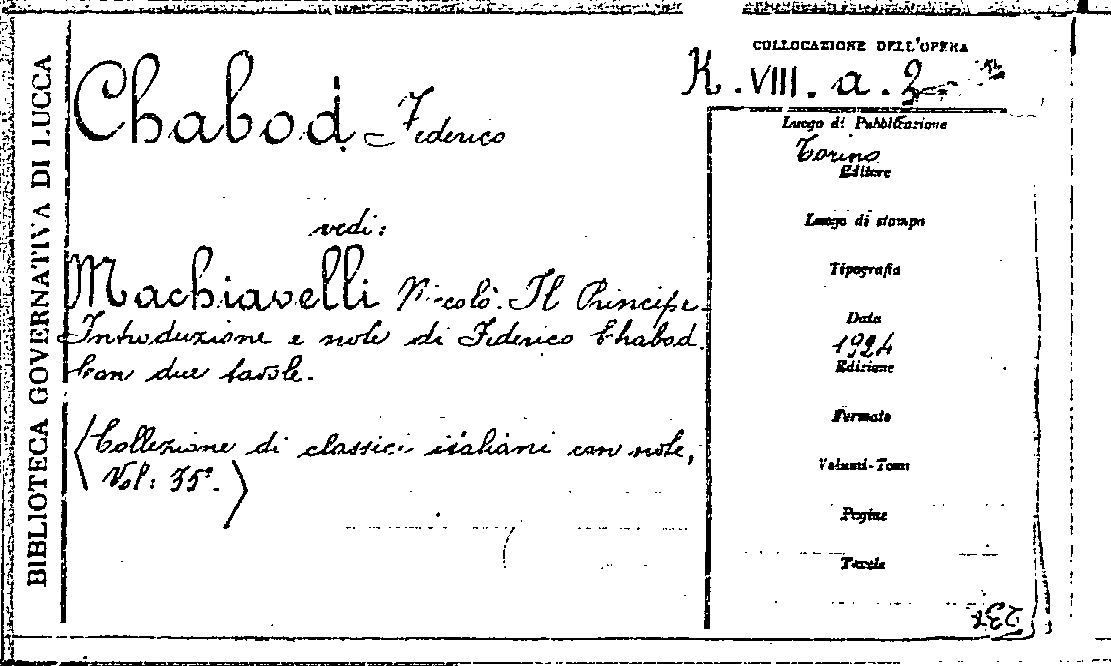 BIBLIOTECA GOVERNATIVA DI LUCCA
Chabod Federico
vedi:
Machiavelli Nicolò. Il Principe.
Introduzione e note di Federico Chabod.
Con due tavole.
(Collezione di classici italiani con note,
Vol: 35°.)
COLLOCAZIONE DELL'OPERA
K. VIII. a. 2
Luogo di Pubblicazione
Torino
Editore
Luogo di stampa
Tipografia
Data
1924
Edizione
Formato
Volumi-Tomi
Pagine
Tavole
237